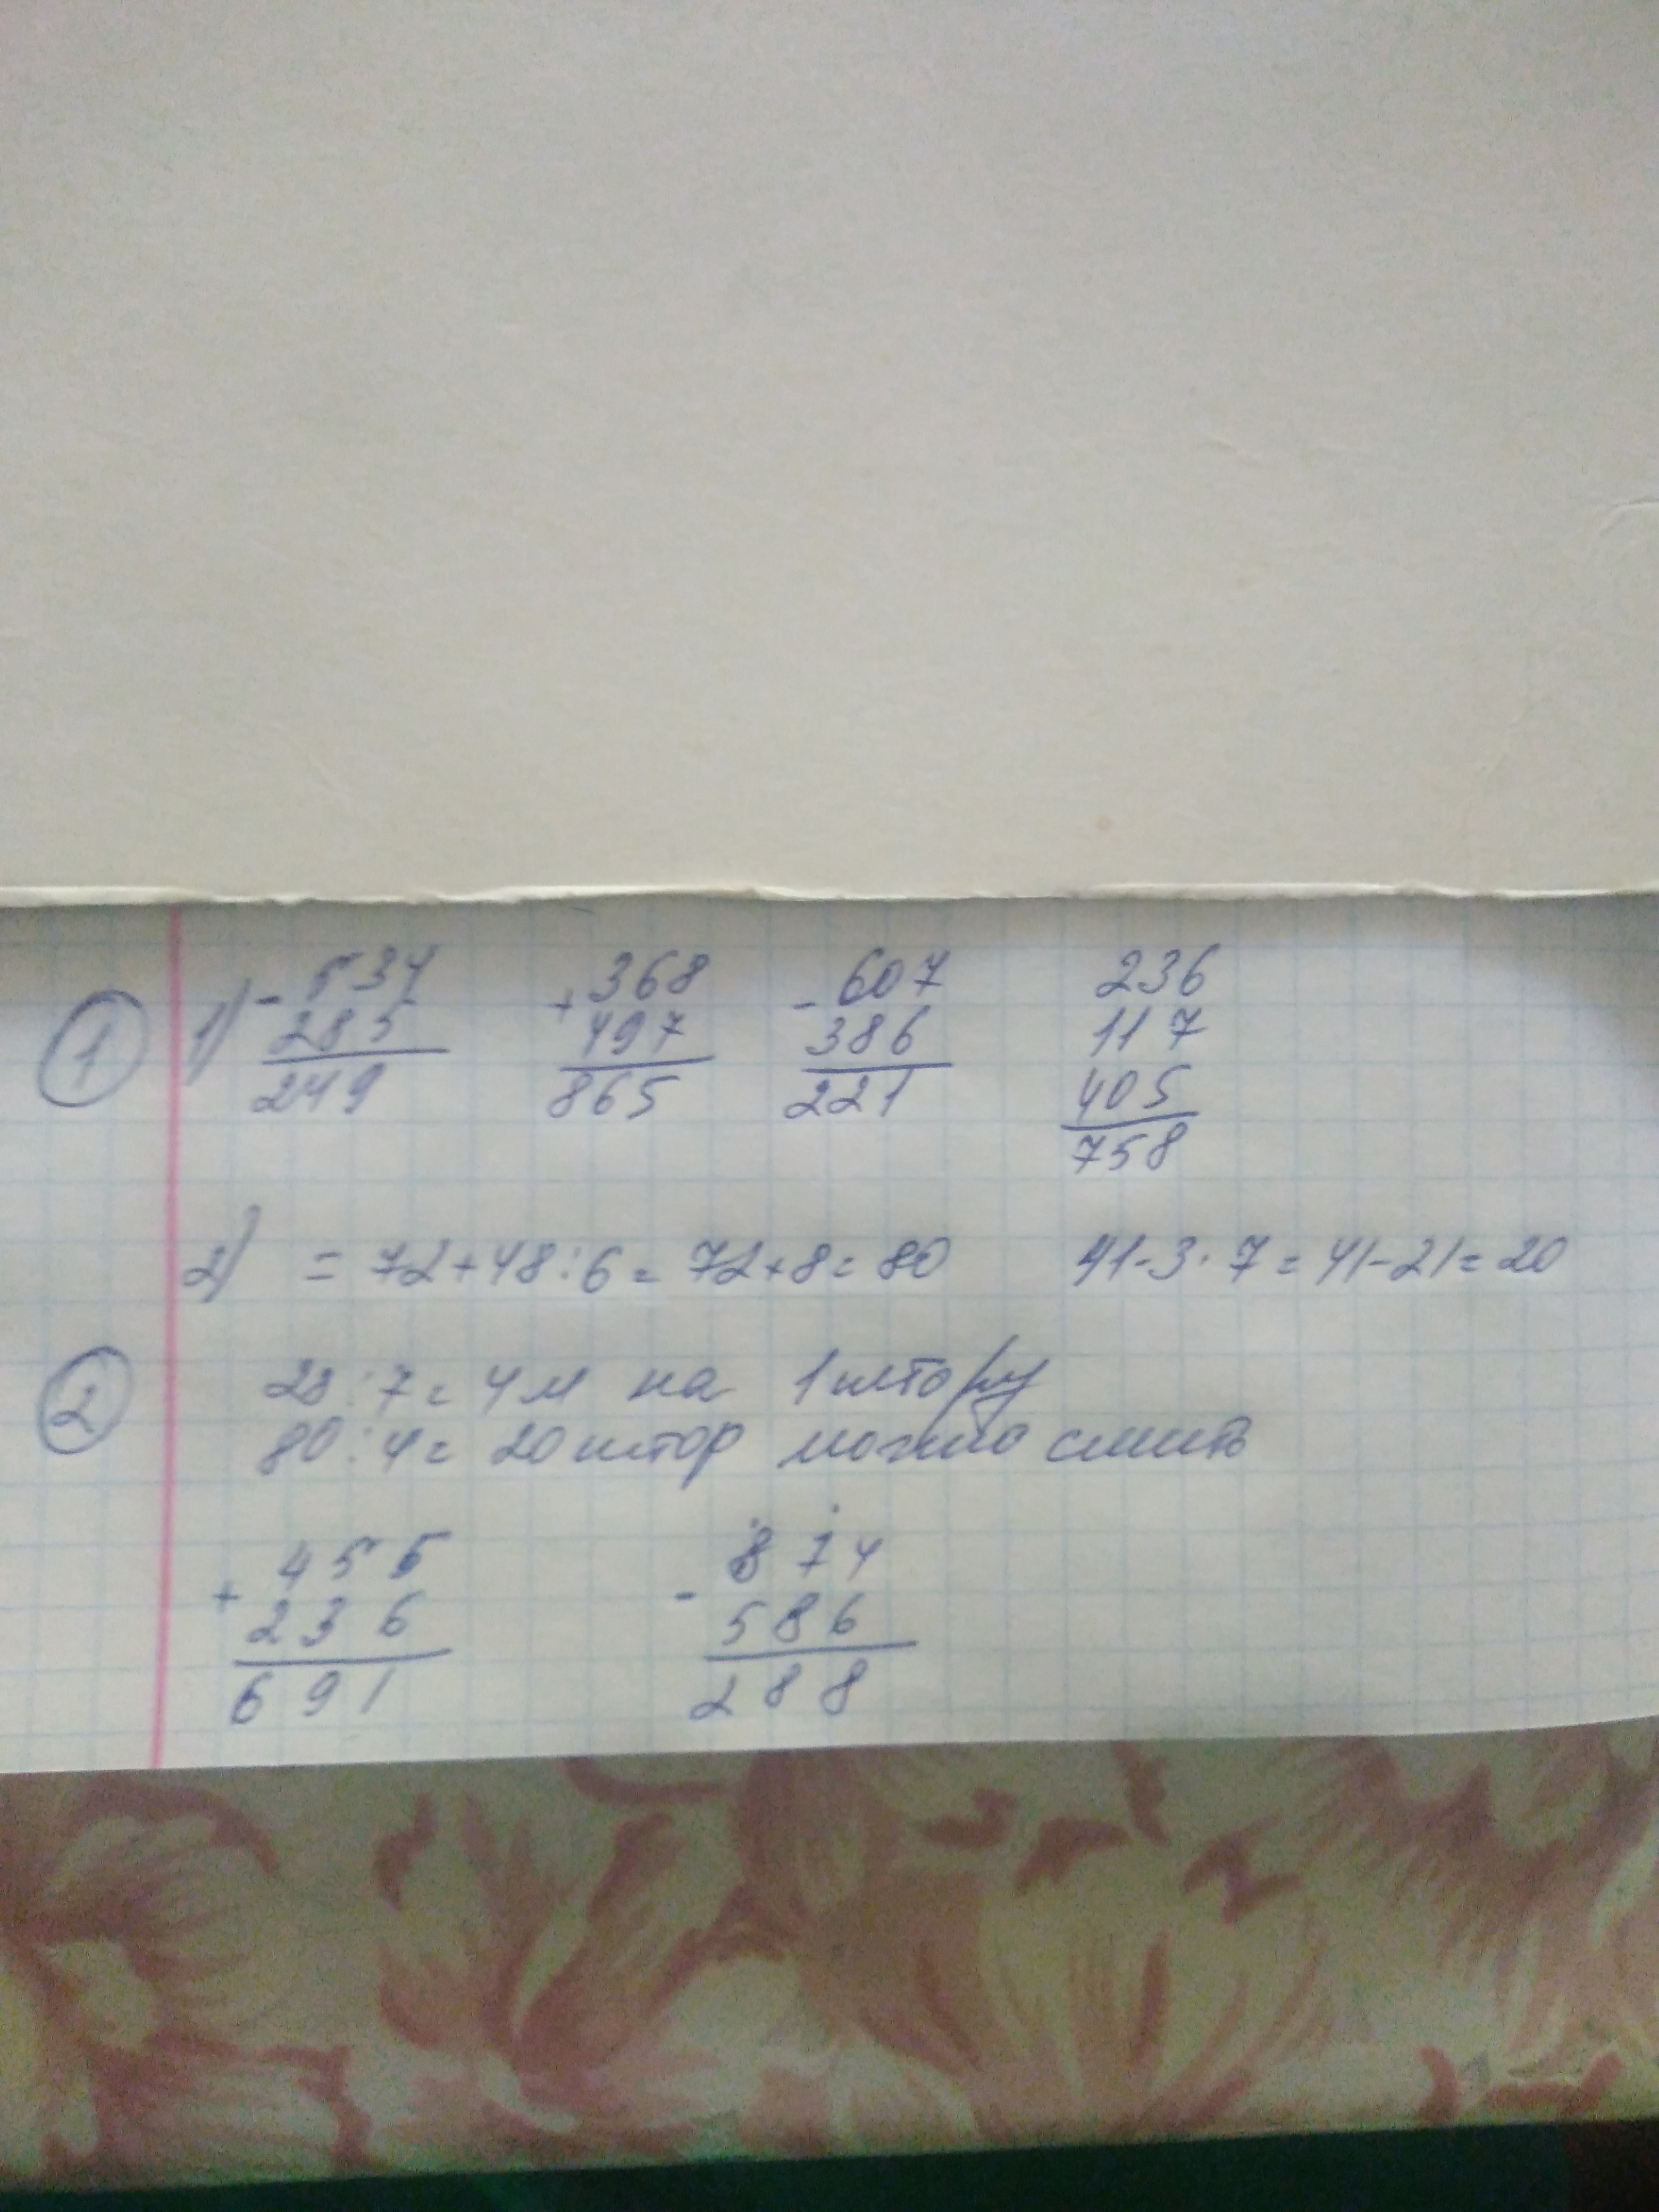 1 1) - 534 + 368 - 607 236
285 497 386 117
249 865 221 405
758
2) = 72+48:6= 72+8=80 41-3·7=41-21=20
2 28:7= 4м на 1 штору
80:4= 20 штор можно сшить
+ 455 - 874
236 586
691 288